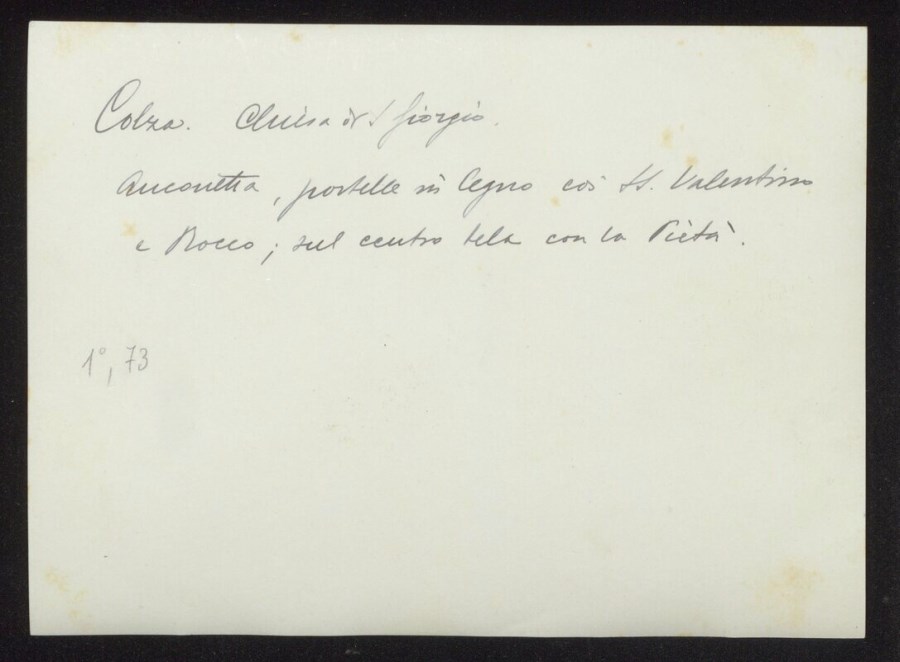 Colza. Chiesa di S Giorgio.
Anconetta, portelle in legno coi SS. Valentino
e Rocco; sul centro tela con la Pietà.
1°, 73